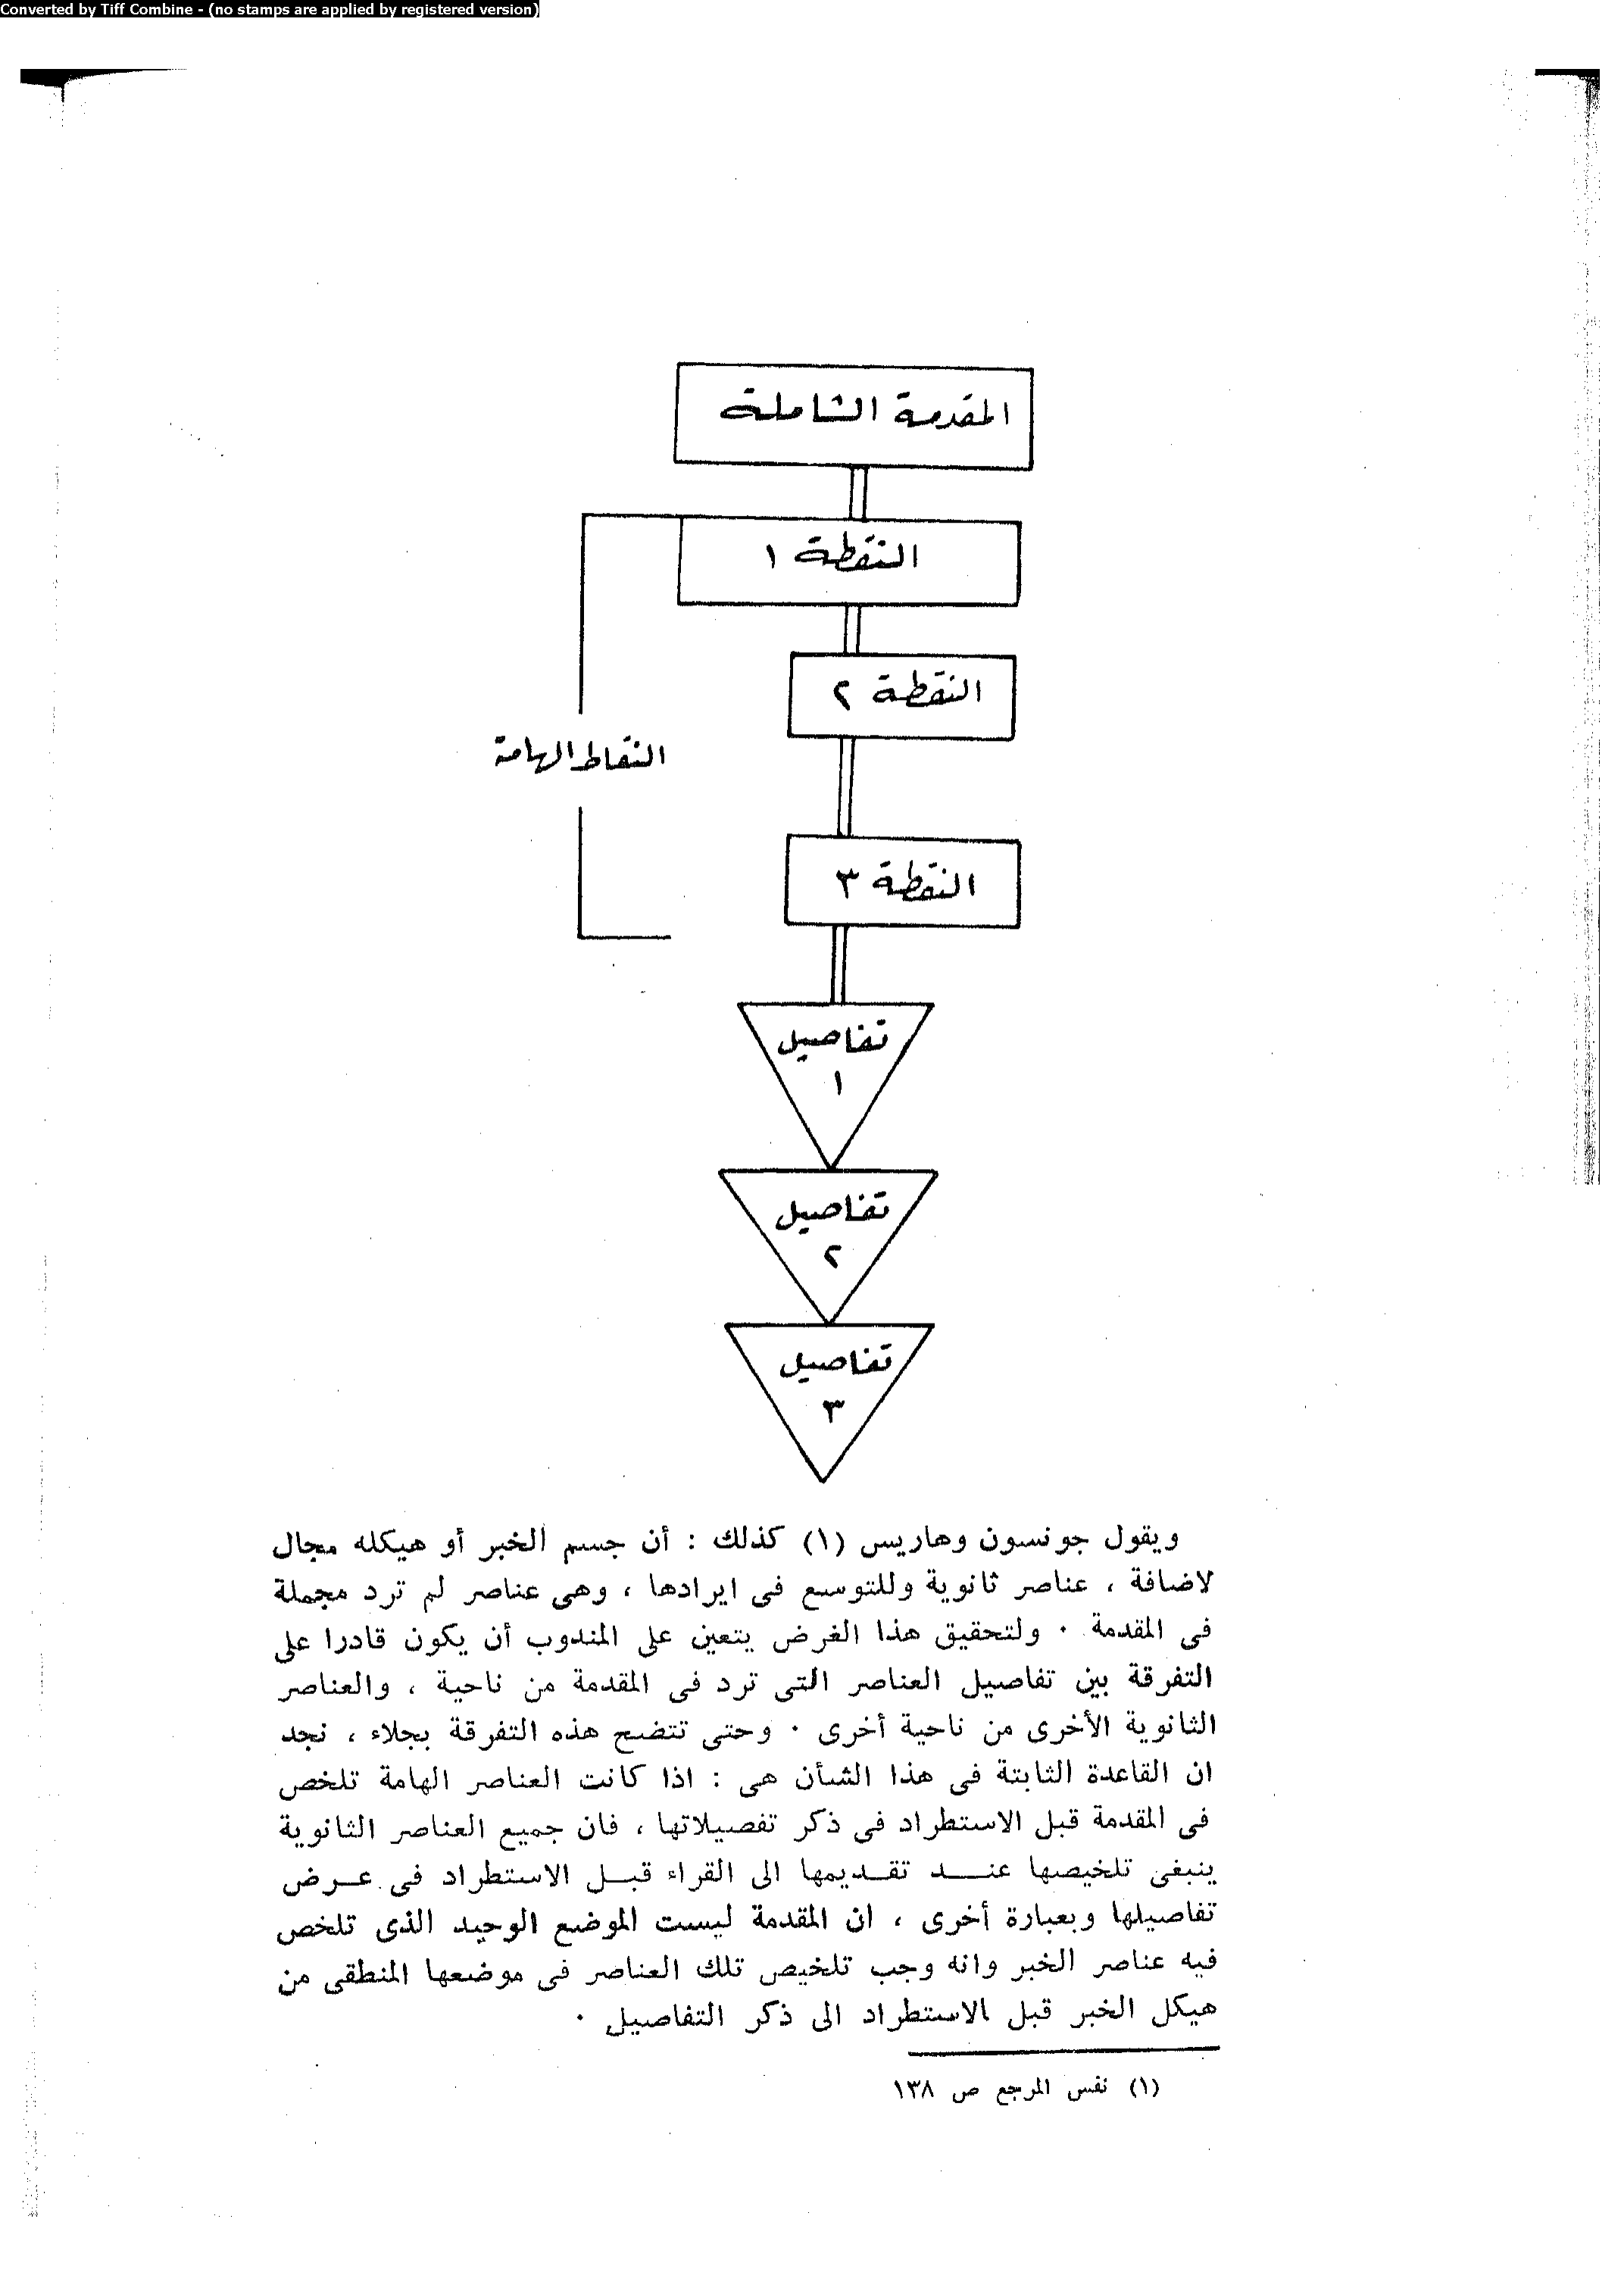 Converted by Tiff Combine - (no stamps are applied by registered version)
المقدمة الشاملة
النقطة ١
النقطة ٢
النقاط الهامة
النقطة ٣
تفاصيل
١
تفاصيل
٢
تفاصيل
٣
ويقول جونسون وهاريس (١) كذلك : أن جسم الخبر أو هيكله مجال
لاضافة ، عناصر ثانوية وللتوسع فى ايرادها ، وهى عناصر لم ترد مجملة
فى المقدمة ٠ ولتحقيق هذا الغرض يتعين على المندوب أن يكون قادرا على
التفرقة بين تفاصيل العناصر التى ترد فى المقدمة من ناحية ، والعناصر
الثانوية الأخرى من ناحية أخرى ٠ وحتى تتضح هذه التفرقة بجلاء ، نجد
ان القاعدة الثابتة فى هذا الشأن هى : اذا كانت العناصر الهامة تلخص
فى المقدمة قبل الاستطراد فى ذكر تفصيلاتها ، فان جميع العناصر الثانوية
ينبغى تلخيصها عنـــد تقـديمها الى القراء قبـل الاستطراد فى عـرض
تفاصيلها وبعبارة أخرى ، ان المقدمة ليست الموضع الوحيد الذى تلخص
فيه عناصر الخبر وانه وجب تلخيص تلك العناصر فى موضعها المنطقى من
هيكل الخبر قبل الاستطراد الى ذكر التفاصيل ٠
(١) نفس المرجع ص ١٣٨